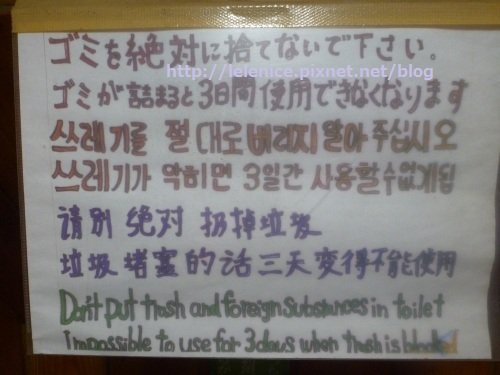 ゴミを絶対に捨てないで下さい。
http://lelenice.pixnet.net/blog
ゴミが詰まると3日間使用できなくなります
쓰레기를 절대로 버리지 말아 주십시오
쓰레기가 막히면 3일간 사용할수없게됩
请别 绝对 扔掉垃圾
垃圾堵塞的话三天变得不能使用
Don't put trash and foreign substances in toilet
impossible to use for 3days when trash is blocked